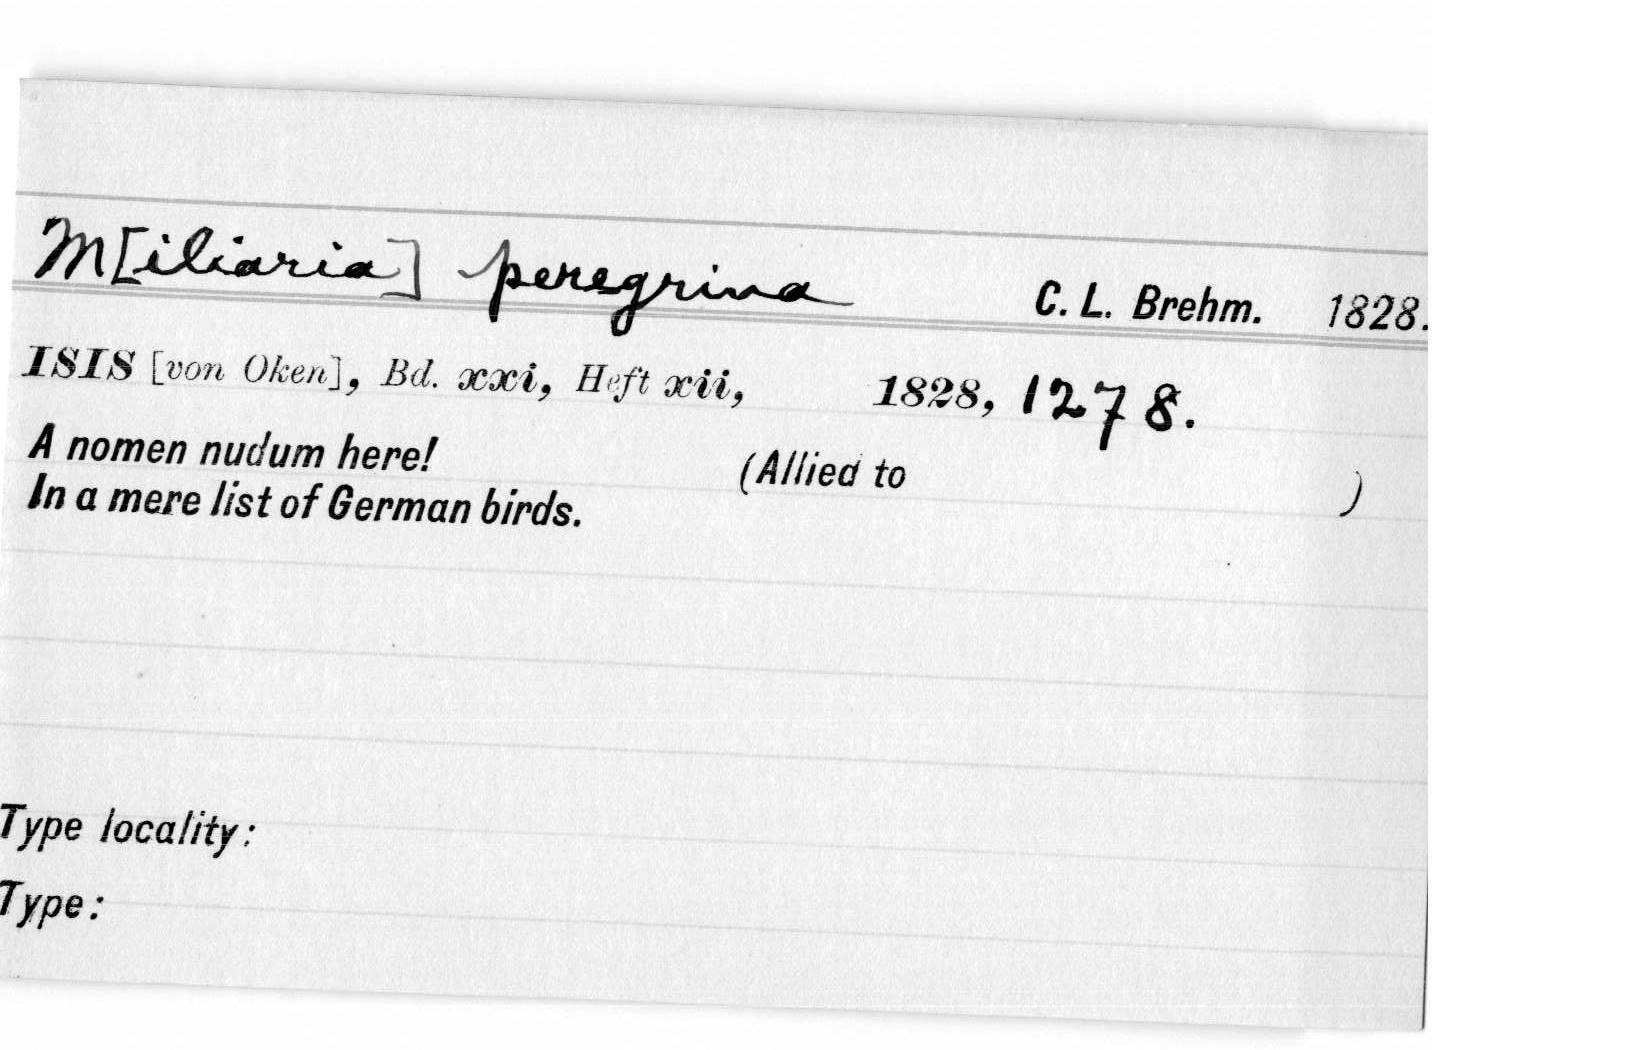 M[iliaria] peregrina C. L. Brehm. 1828.
ISIS [von Oken], Bd. xxi, Heft xii, 1828, 1278.
A nomen nudum here! (Allied to )
In a mere list of German birds.
Type locality:
Type: